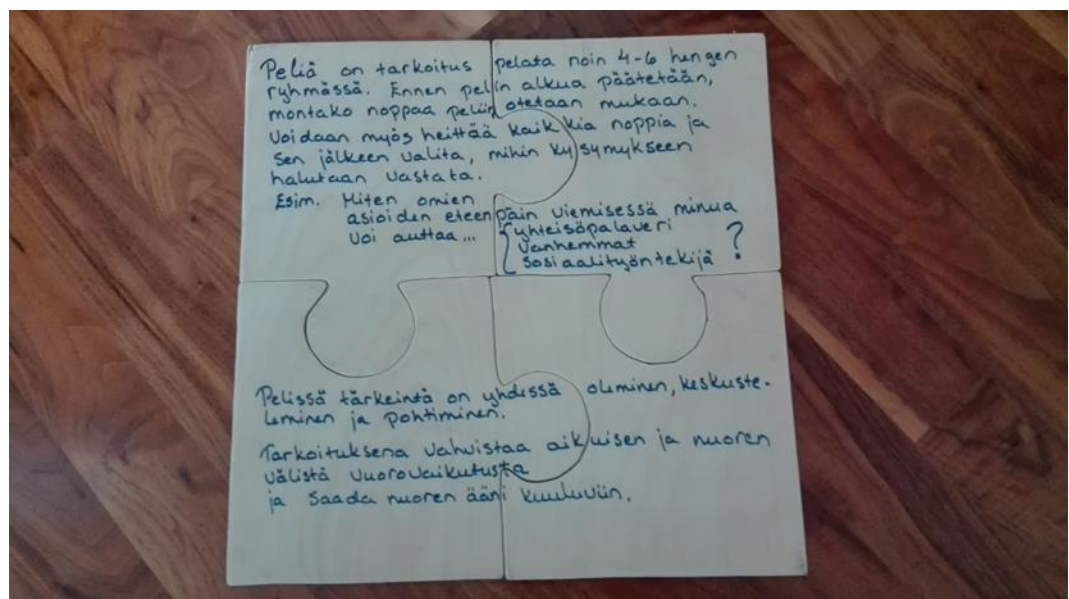 Peliä on tarkoitus pelata noin 4-6 hengen
ryhmässä. Ennen pelin alkua päätetään,
montako noppaa peliin otetaan mukaan.
Voidaan myös heittää kaikkia noppia ja
sen jälkeen valita, mihin kysymykseen
halutaan vastata.
Esim. Miten omien
asioiden eteenpäin viemisessä minua
voi auttaa... { yhteisöpalaveri
vanhemmat
sosiaalityöntekijä ?
Pelissä tärkeintä on yhdessä oleminen, keskuste-
leminen ja pohtiminen.
Tarkoituksena vahvistaa aikuisen ja nuoren
välistä vuorovaikutusta
ja saada nuoren ääni kuuluviin.